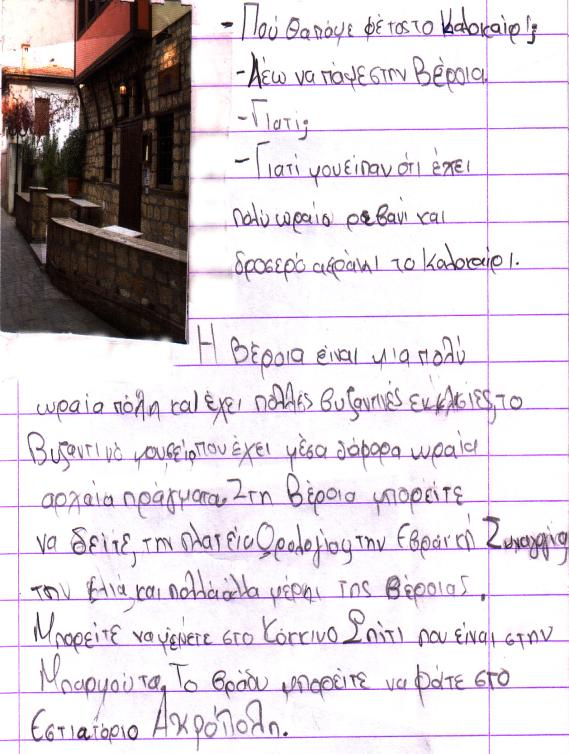 - Πού θα πάμε φέτος το καλοκαίρι;
- Λέω να πάμε στην Βέροια
- Γιατί;
- Γιατί μου είπαν ότι έχει
πολύ ωραίο ρεβανί και
δροσερό αεράκι το καλοκαίρι.
Η Βέροια είναι μια πολύ
ωραία πόλη και έχει πολλές βυζαντινές εκκλησίες, το
Βυζαντινό μουσείο που έχει μέσα διάφορα ωραία
αρχαία πράγματα. Στη Βέροια μπορείτε
να δείτε, την πλατεία Ωρολογίου, την Εβραϊκή Συναγωγή
την Ελιά, και πολλά άλλα μέρη της Βέροιας.
Μπορείτε να μένετε στο Κόκκινο Σπίτι που είναι στην
Μπαρμπούτα. Το βράδυ μπορείτε να φάτε στο
Εστιατόριο Ακρόπολη.